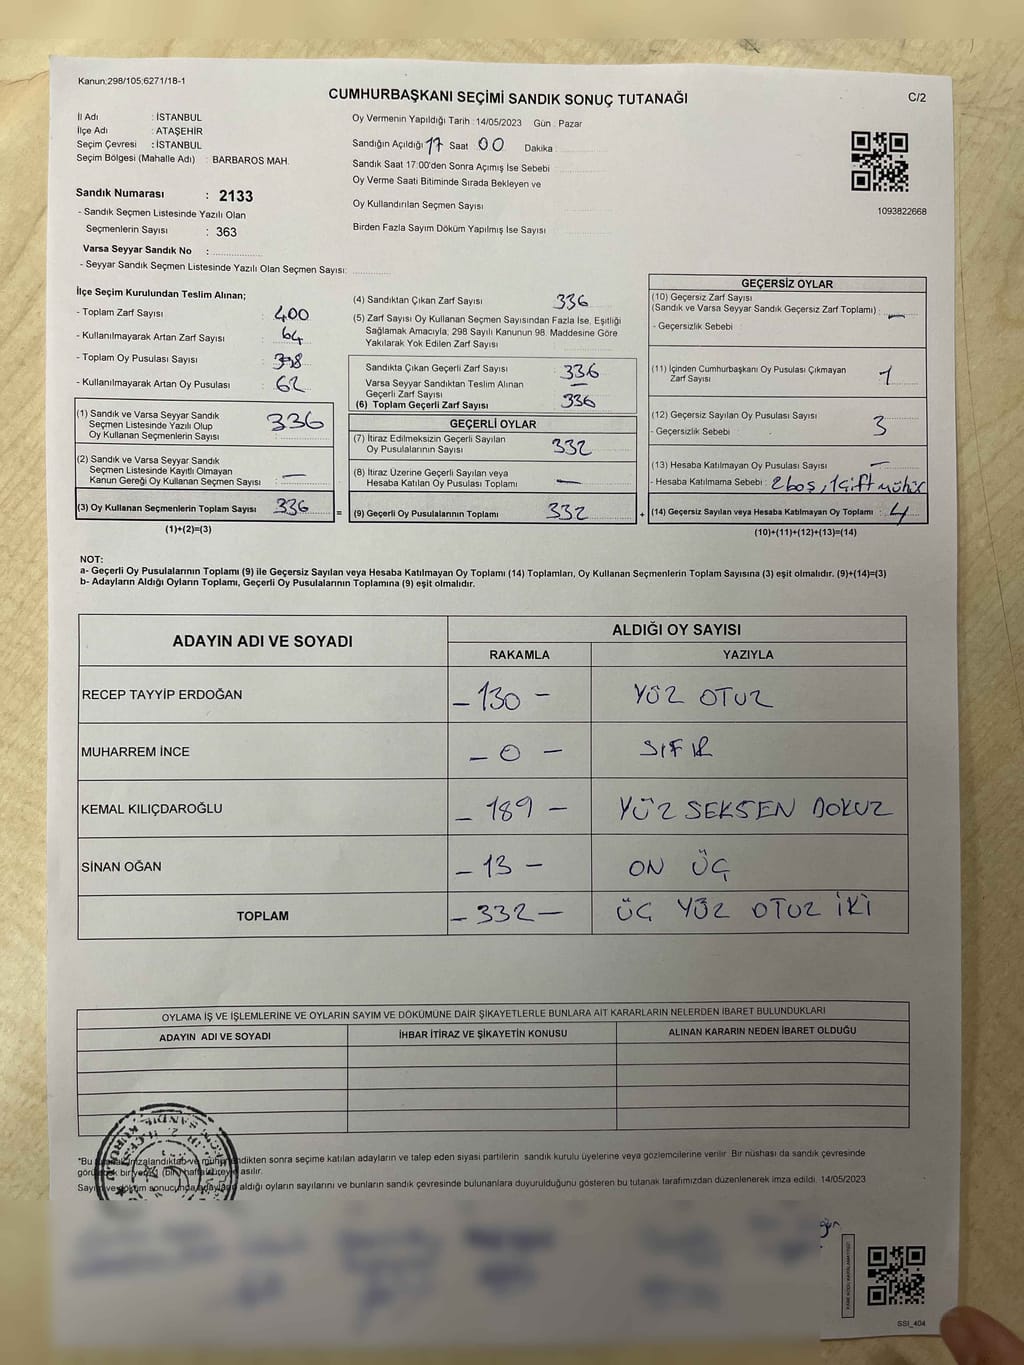 Kanun;298/105;6271/18-1
CUMHURBAŞKANI SEÇİMİ SANDIK SONUÇ TUTANAĞI
C/2
İl Adı : İSTANBUL
İlçe Adı : ATAŞEHİR
Seçim Çevresi : İSTANBUL
Seçim Bölgesi (Mahalle Adı) : BARBAROS MAH.
Sandık Numarası : 2133
- Sandık Seçmen Listesinde Yazılı Olan
Seçmenlerin Sayısı : 363
Varsa Seyyar Sandık No :
- Seyyar Sandık Seçmen Listesinde Yazılı Olan Seçmen Sayısı:
Oy Vermenin Yapıldığı Tarih : 14/05/2023 Gün : Pazar
Sandığın Açıldığı 17 Saat 00 Dakika :
Sandık Saat 17:00'den Sonra Açımış İse Sebebi
Oy Verme Saati Bitiminde Sırada Bekleyen ve
Oy Kullandırılan Seçmen Sayısı
Birden Fazla Sayım Döküm Yapılmış İse Sayısı
1093822668
İlçe Seçim Kurulundan Teslim Alınan;
- Toplam Zarf Sayısı : 400
- Kullanılmayarak Artan Zarf Sayısı : 64
- Toplam Oy Pusulası Sayısı : 398
- Kullanılmayarak Artan Oy Pusulası : 62
(1) Sandık ve Varsa Seyyar Sandık
Seçmen Listesinde Yazılı Olup
Oy Kullanan Seçmenlerin Sayısı : 336
(2) Sandık ve Varsa Seyyar Sandık
Seçmen Listesinde Kayıtlı Olmayan
Kanun Gereği Oy Kullanan Seçmen Sayısı : —
(3) Oy Kullanan Seçmenlerin Toplam Sayısı 336 =
(1)+(2)=(3)
(4) Sandıktan Çıkan Zarf Sayısı 336
(5) Zarf Sayısı Oy Kullanan Seçmen Sayısından Fazla İse, Eşitliği
Sağlamak Amacıyla, 298 Sayılı Kanunun 98. Maddesine Göre
Yakılarak Yok Edilen Zarf Sayısı
Sandıkta Çıkan Geçerli Zarf Sayısı 336
Varsa Seyyar Sandıktan Teslim Alınan
Geçerli Zarf Sayısı —
(6) Toplam Geçerli Zarf Sayısı 336
GEÇERLİ OYLAR
(7) İtiraz Edilmeksizin Geçerli Sayılan
Oy Pusulalarının Sayısı 332
(8) İtiraz Üzerine Geçerli Sayılan veya
Hesaba Katılan Oy Pusulası Toplamı —
(9) Geçerli Oy Pusulalarının Toplamı 332 +
GEÇERSİZ OYLAR
(10) Geçersiz Zarf Sayısı
(Sandık ve Varsa Seyyar Sandık Geçersiz Zarf Toplamı) : —
- Geçersizlik Sebebi :
(11) İçinden Cumhurbaşkanı Oy Pusulası Çıkmayan
Zarf Sayısı 1
(12) Geçersiz Sayılan Oy Pusulası Sayısı 3
- Geçersizlik Sebebi :
(13) Hesaba Katılmayan Oy Pusulası Sayısı —
- Hesaba Katılmama Sebebi : 2 boş, 1 çift mühür
(14) Geçersiz Sayılan veya Hesaba Katılmayan Oy Toplamı : 4
(10)+(11)+(12)+(13)=(14)
NOT:
a- Geçerli Oy Pusulalarının Toplamı (9) ile Geçersiz Sayılan veya Hesaba Katılmayan Oy Toplamı (14) Toplamları, Oy Kullanan Seçmenlerin Toplam Sayısına (3) eşit olmalıdır. (9)+(14)=(3)
b- Adayların Aldığı Oyların Toplamı, Geçerli Oy Pusulalarının Toplamına (9) eşit olmalıdır.
ADAYIN ADI VE SOYADI
ALDIĞI OY SAYISI
RAKAMLA YAZIYLA
RECEP TAYYİP ERDOĞAN - 130 - YÜZ OTUZ
MUHARREM İNCE - 0 - SIFIR
KEMAL KILIÇDAROĞLU - 189 - YÜZ SEKSEN DOKUZ
SİNAN OĞAN - 13 - ON ÜÇ
TOPLAM - 332 - ÜÇ YÜZ OTUZ İKİ
OYLAMA İŞ VE İŞLEMLERİNE VE OYLARIN SAYIM VE DÖKÜMÜNE DAİR ŞİKAYETLERLE BUNLARA AİT KARARLARIN NELERDEN İBARET BULUNDUKLARI
ADAYIN ADI VE SOYADI İHBAR İTİRAZ VE ŞİKAYETİN KONUSU ALINAN KARARIN NEDEN İBARET OLDUĞU
*Bu imzalandıktan ve dikten sonra seçime katılan adayların ve talep eden siyasi partilerin sandık kurulu üyelerine veya gözlemcilerine verilir. Bir nüshası da sandık çevresinde
bir yere (bir) hafta asılır.
sonucunda aldığı oyların sayılarını ve bunların sandık çevresinde bulunanlara duyurulduğunu gösteren bu tutanak tarafımızdan düzenlenerek imza edildi. 14/05/2023
SSI_404